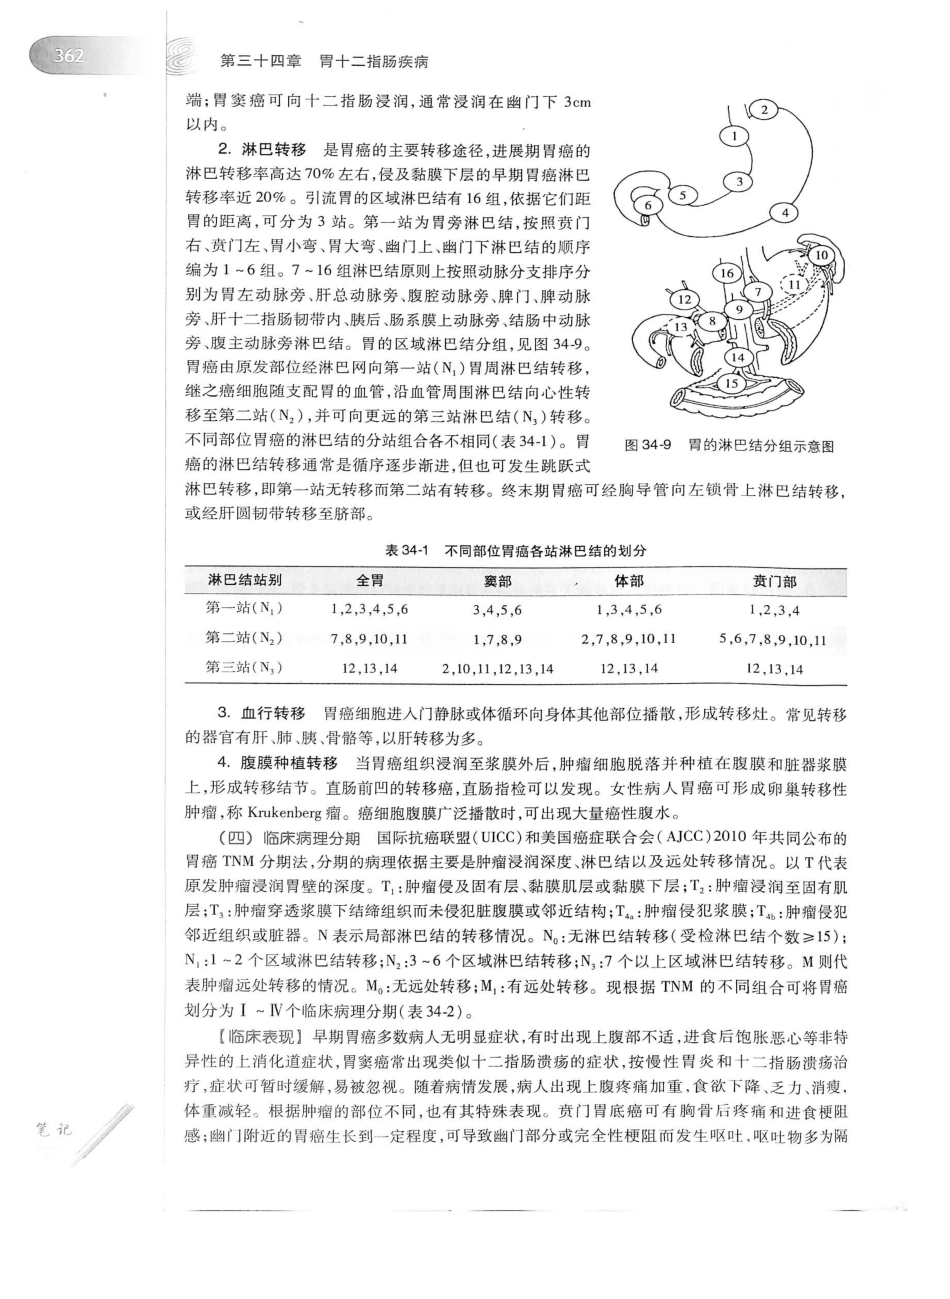 362
第三十四章 胃十二指肠疾病
端;胃窦癌可向十二指肠浸润,通常浸润在幽门下 3cm
以内。
2. 淋巴转移 是胃癌的主要转移途径,进展期胃癌的
淋巴转移率高达 70% 左右,侵及黏膜下层的早期胃癌淋巴
转移率近 20% 。引流胃的区域淋巴结有 16 组,依据它们距
胃的距离,可分为 3 站。第一站为胃旁淋巴结,按照贲门
右、贲门左、胃小弯、胃大弯、幽门上、幽门下淋巴结的顺序
编为 1 ~6 组。7 ~16 组淋巴结原则上按照动脉分支排序分
别为胃左动脉旁、肝总动脉旁、腹腔动脉旁、脾门、脾动脉
旁、肝十二指肠韧带内、胰后、肠系膜上动脉旁、结肠中动脉
旁、腹主动脉旁淋巴结。胃的区域淋巴结分组,见图 34-9。
胃癌由原发部位经淋巴网向第一站(N₁)胃周淋巴结转移,
继之癌细胞随支配胃的血管,沿血管周围淋巴结向心性转
移至第二站(N₂),并可向更远的第三站淋巴结(N₃)转移。
不同部位胃癌的淋巴结的分站组合各不相同(表 34-1)。胃
癌的淋巴结转移通常是循序逐步渐进,但也可发生跳跃式
淋巴转移,即第一站无转移而第二站有转移。终末期胃癌可经胸导管向左锁骨上淋巴结转移,
或经肝圆韧带转移至脐部。
2
1
3
5
6
4
10
16
11
7
12
9
8
13
14
15
图 34-9 胃的淋巴结分组示意图
表 34-1 不同部位胃癌各站淋巴结的划分
淋巴结站别 全胃 窦部 体部 贲门部
第一站(N₁) 1,2,3,4,5,6 3,4,5,6 1,3,4,5,6 1,2,3,4
第二站(N₂) 7,8,9,10,11 1,7,8,9 2,7,8,9,10,11 5,6,7,8,9,10,11
第三站(N₃) 12,13,14 2,10,11,12,13,14 12,13,14 12,13,14
3. 血行转移 胃癌细胞进入门静脉或体循环向身体其他部位播散,形成转移灶。常见转移
的器官有肝、肺、胰、骨骼等,以肝转移为多。
4. 腹膜种植转移 当胃癌组织浸润至浆膜外后,肿瘤细胞脱落并种植在腹膜和脏器浆膜
上,形成转移结节。直肠前凹的转移癌,直肠指检可以发现。女性病人胃癌可形成卵巢转移性
肿瘤,称 Krukenberg 瘤。癌细胞腹膜广泛播散时,可出现大量癌性腹水。
(四) 临床病理分期 国际抗癌联盟(UICC)和美国癌症联合会(AJCC)2010 年共同公布的
胃癌 TNM 分期法,分期的病理依据主要是肿瘤浸润深度、淋巴结以及远处转移情况。以 T 代表
原发肿瘤浸润胃壁的深度。T₁:肿瘤侵及固有层、黏膜肌层或黏膜下层;T₂:肿瘤浸润至固有肌
层;T₃:肿瘤穿透浆膜下结缔组织而未侵犯脏腹膜或邻近结构;T₄ₐ:肿瘤侵犯浆膜;T₄b:肿瘤侵犯
邻近组织或脏器。N 表示局部淋巴结的转移情况。N₀:无淋巴结转移(受检淋巴结个数≥15);
N₁:1 ~2 个区域淋巴结转移;N₂:3 ~6 个区域淋巴结转移;N₃:7 个以上区域淋巴结转移。M 则代
表肿瘤远处转移的情况。M₀:无远处转移;M₁:有远处转移。现根据 TNM 的不同组合可将胃癌
划分为 Ⅰ ~ Ⅳ个临床病理分期(表 34-2)。
【临床表现】 早期胃癌多数病人无明显症状,有时出现上腹部不适,进食后饱胀恶心等非特
异性的上消化道症状,胃窦癌常出现类似十二指肠溃疡的症状,按慢性胃炎和十二指肠溃疡治
疗,症状可暂时缓解,易被忽视。随着病情发展,病人出现上腹疼痛加重,食欲下降、乏力、消瘦,
体重减轻。根据肿瘤的部位不同,也有其特殊表现。贲门胃底癌可有胸骨后疼痛和进食梗阻
感;幽门附近的胃癌生长到一定程度,可导致幽门部分或完全性梗阻而发生呕吐,呕吐物多为隔
笔记